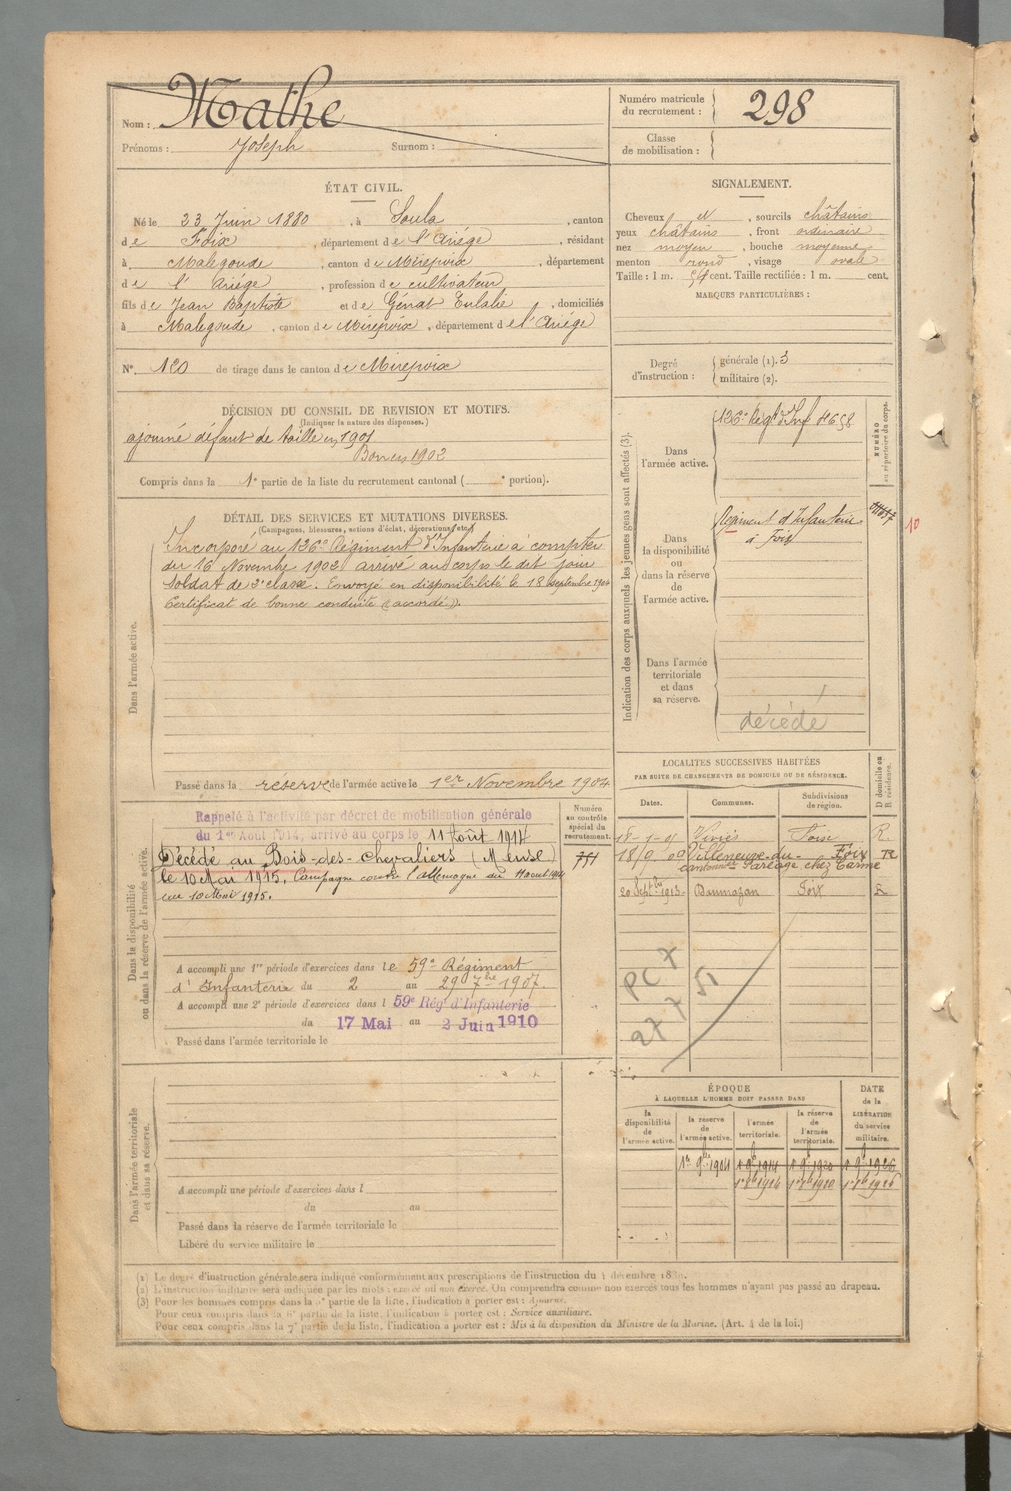 Nom : Mathe
Prénoms : Joseph Surnom :
Numéro matricule du recrutement : 298
Classe de mobilisation :
ÉTAT CIVIL.
Né le 23 Juin 1880, à Soula, canton
de Foix, département de l'Ariège, résidant
à Malegoude, canton de Mirepoix, département
de l'Ariège, profession de cultivateur
fils de Jean Baptiste et de Génat Eulalie, domiciliés
à Malegoude, canton de Mirepoix, département de l'Ariège
N° 120 de tirage dans le canton de Mirepoix
SIGNALEMENT.
Cheveux et, sourcils châtains
yeux châtains, front ordinaire
nez moyen, bouche moyenne
menton rond, visage ovale
Taille : 1 m. 54 cent. Taille rectifiée : 1 m. cent.
MARQUES PARTICULIÈRES :
Degré d'instruction : générale (1). 3
militaire (2).
DÉCISION DU CONSEIL DE REVISION ET MOTIFS.
(Indiquer la nature des dispenses.)
ajourné défaut de taille en 1901
Bon en 1902
Compris dans la 1e partie de la liste du recrutement cantonal ( e portion).
DÉTAIL DES SERVICES ET MUTATIONS DIVERSES.
(Campagnes, blessures, actions d'éclat, décorations, etc.)
Dans l'armée active.
Incorporé au 126e Régiment d'Infanterie à compter
du 16 Novembre 1902. arrivé au corps le dit jour
Soldat de 2e classe. Envoyé en disponibilité le 18 septembre 1904
Certificat de bonne conduite "accordé".
Passé dans la réserve de l'armée active le 1er Novembre 1904
Indication des corps auxquels les jeunes gens sont affectés (3).
Dans l'armée active.
126e Régt d'Inf
NUMÉRO au répertoire du corps.
Dans la disponibilité ou dans la réserve de l'armée active.
Régiment d'Infanterie
à Foix
10
Dans l'armée territoriale et dans sa réserve.
décédé
Dans la disponibilité ou dans la réserve de l'armée active.
Numéro au contrôle spécial du recrutement.
Rappelé à l'activité par décret de mobilisation générale
du 1er Août 1914, arrivé au corps le 11 août 1914
Décédé au Bois-des-Chevaliers (Meuse)
le 10 Mai 1915. Campagne contre l'Allemagne du 11 aout 1914
au 10 Mai 1915.
A accompli une 1re période d'exercices dans le 59e Régiment
d'Infanterie du 2 au 29 7bre 1907.
A accompli une 2e période d'exercices dans l 59e Rég d'Infanterie
du 17 Mai au 2 Juin 1910
Passé dans l'armée territoriale le
LOCALITÉS SUCCESSIVES HABITÉES
PAR SUITE DE CHANGEMENTS DE DOMICILE OU DE RÉSIDENCE.
Dates. Communes. Subdivisions de région. D domicile ou R résidence.
Foix R
Villeneuve-du- Foix R
chez
20 1913 Foix R
PC 7
277 51
Dans l'armée territoriale et dans sa réserve.
A accompli une période d'exercices dans l
du au
Passé dans la réserve de l'armée territoriale le
Libéré du service militaire le
ÉPOQUE
À LAQUELLE L'HOMME DOIT PASSER DANS
la disponibilité de l'armée active.
la réserve de l'armée active.
l'armée territoriale.
la réserve de l'armée territoriale.
DATE de la LIBÉRATION du service militaire.
1er 9bre 1904 1914 1920 1926
(1) Le degré d'instruction générale sera indiqué conformément aux prescriptions de l'instruction du 4 décembre
(2) L'instruction militaire sera indiquée par les mots : exercé ou non exercé. On comprendra comme non exercés tous les hommes n'ayant pas passé au drapeau.
(3) Pour les hommes compris dans la partie de la liste, l'indication à porter est : Ajourné.
Pour ceux compris dans la 6e partie de la liste, l'indication à porter est : Service auxiliaire.
Pour ceux compris dans la 7e partie de la liste, l'indication à porter est : Mis à la disposition du Ministre de la Marine. (Art. 4 de la loi.)